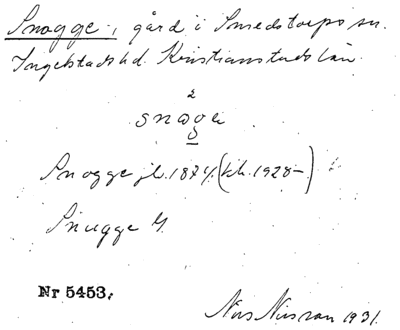 Snogge, gård i Smedstorps sn.
Ingelstads hd. Kristianstads län.
2
snoge
Snogge jb. 1874. (kb. 1928-)
Snugge
Nr 5453.
Nils Nilsson 1931.